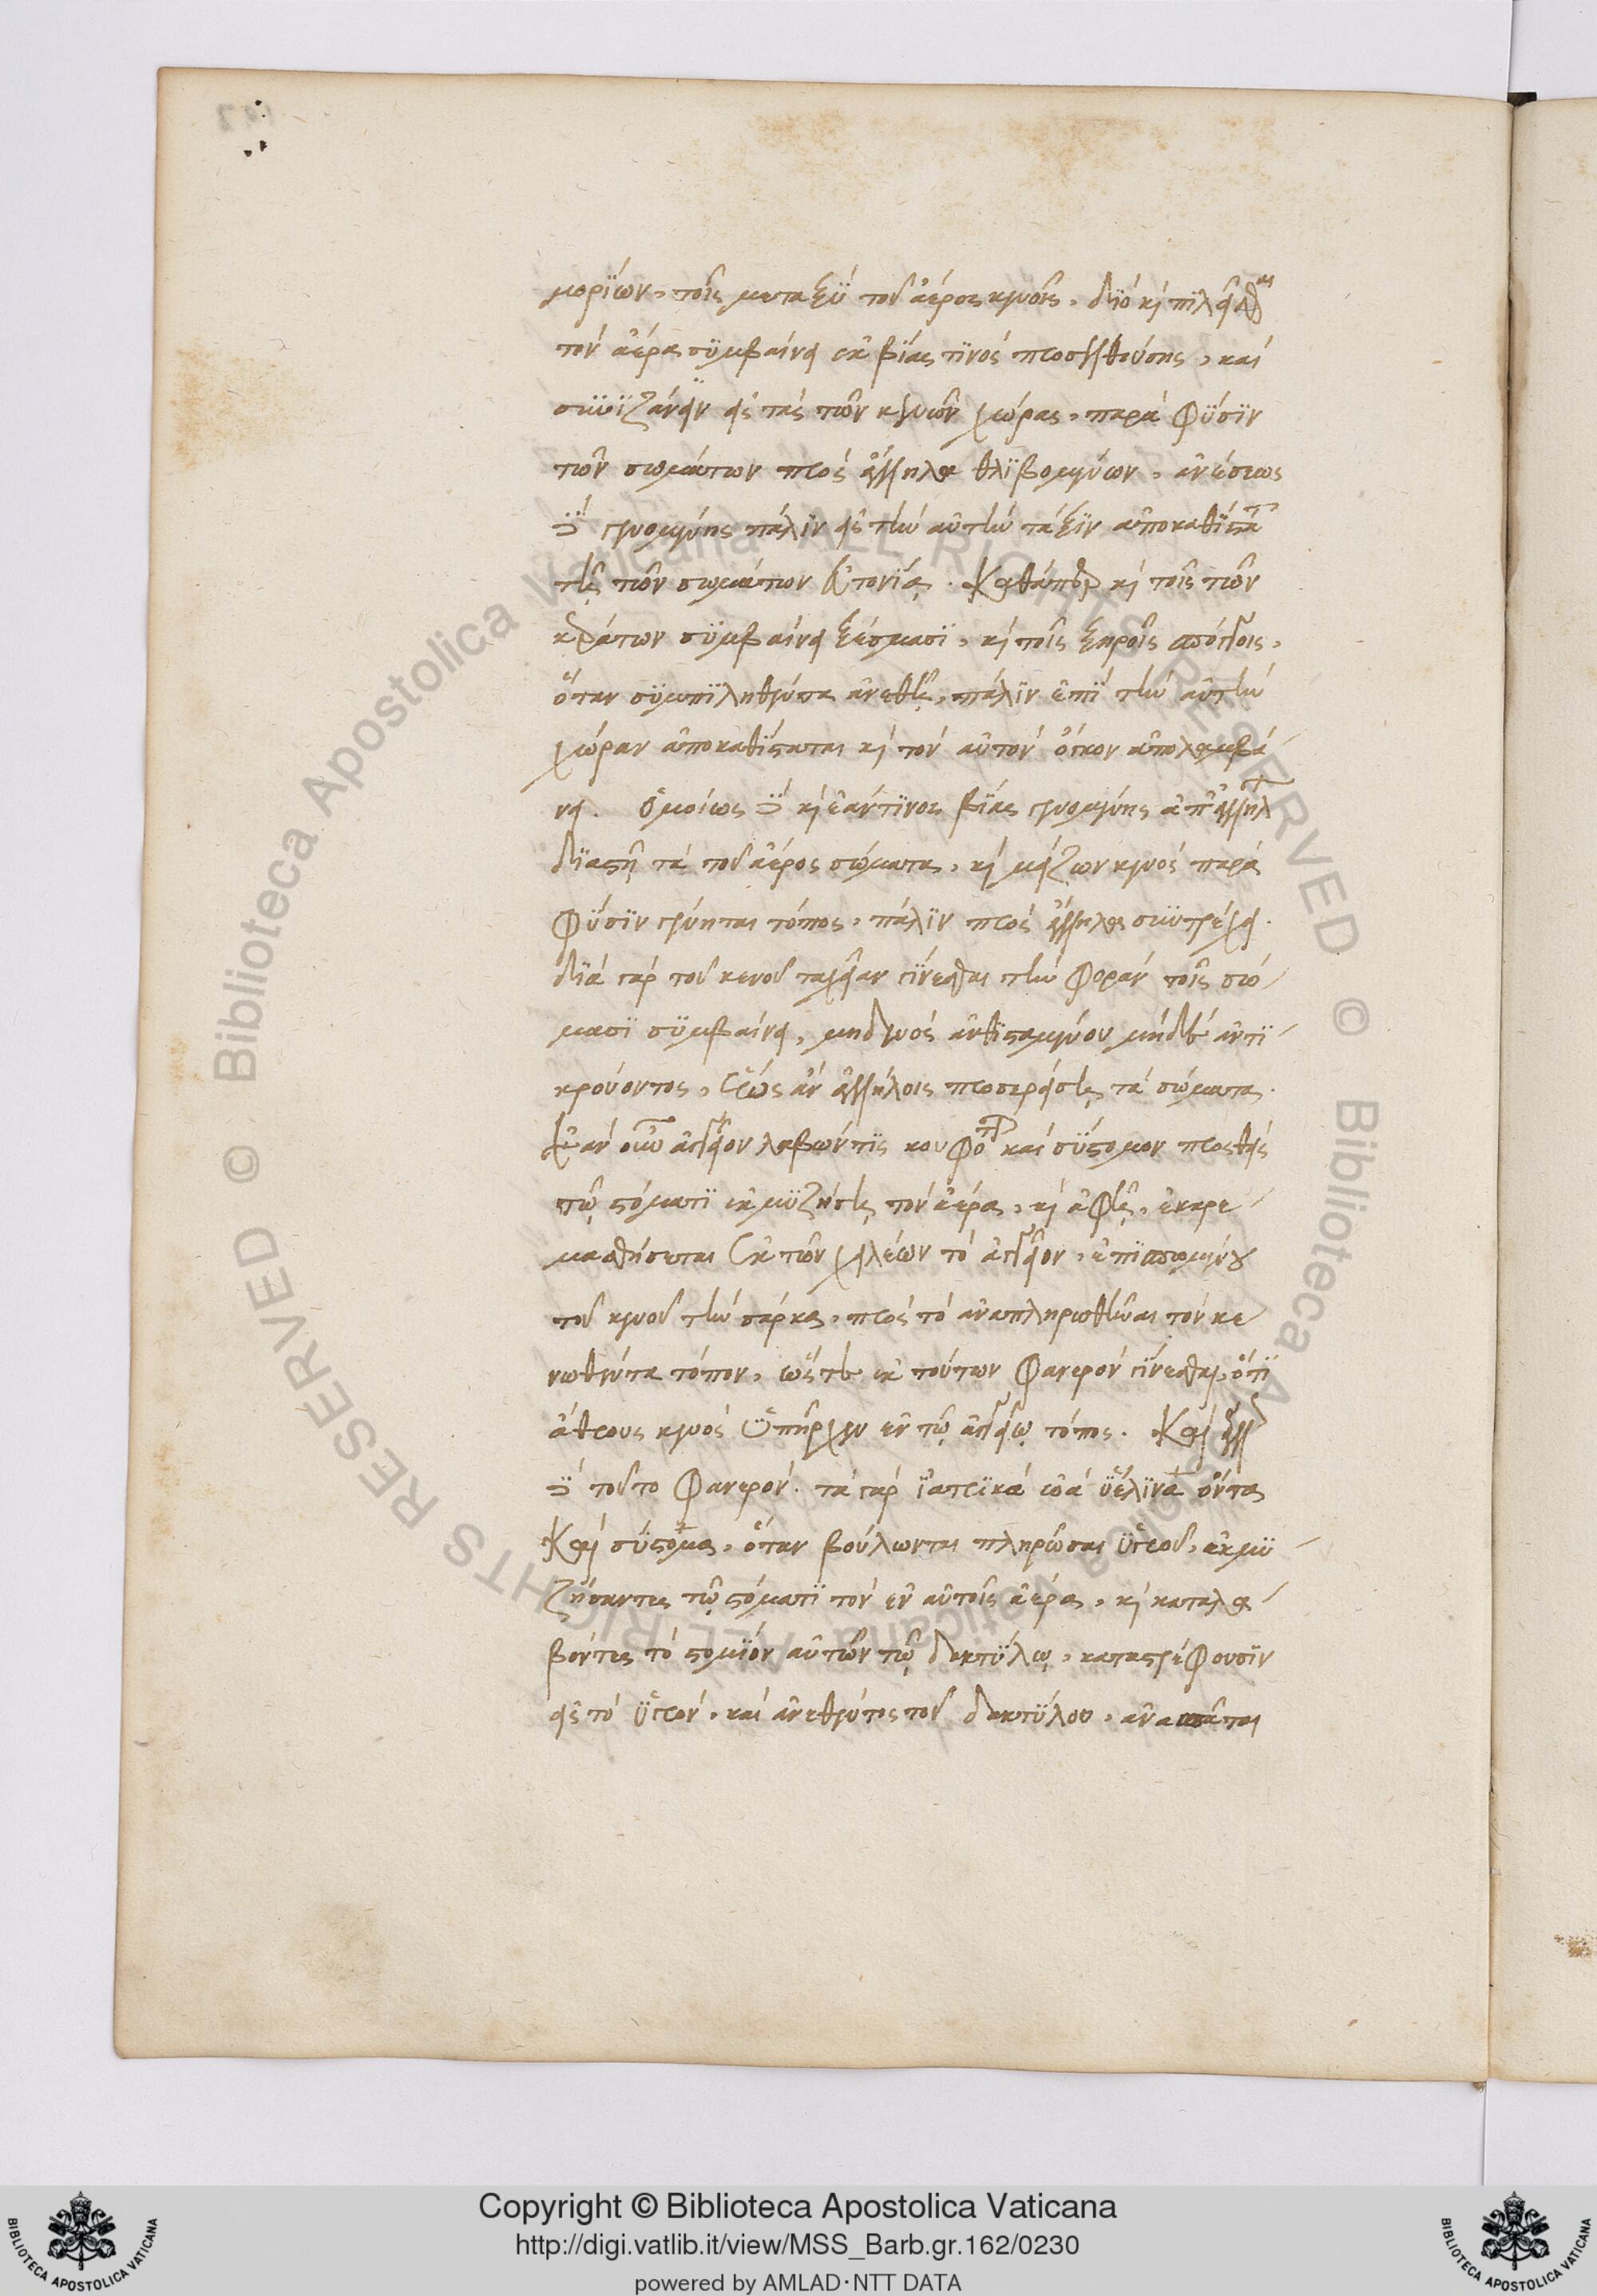 μορίων, τοῖς μεταξὺ τοῦ ἀέρος κενοῖς. διὸ καὶ πιλεῖσθαι
τὸν ἀέρα συμβαίνει ἐκ βίας τινὸς προσελθούσης, καὶ
συνιζάνειν εἰς τὰς τῶν κενῶν χώρας, παρὰ φύσιν
τῶν σωμάτων πρὸς ἄλληλα θλιβομένων. ἀνέσεως
δὲ γενομένης πάλιν εἰς τὴν αὐτὴν τάξιν ἀποκαθίσταται
τῇ τῶν σωμάτων εὐτονίᾳ. Καθάπερ καὶ τοῖς τῶν
κεράτων συμβαίνει ξέσμασι, καὶ τοῖς ξηροῖς σπόγγοις,
ὅταν συμπιληθέντα ἀνεθῇ, πάλιν ἐπὶ τὴν αὐτὴν
χώραν ἀποκαθίσταται καὶ τὸν αὐτὸν ὄγκον ἀπολαμβά
νει. Ὁμοίως δὲ καὶ ἐάν τινος βίας γενομένης ἀπ' ἀλλήλων
διαστῇ τὰ τοῦ ἀέρος σώματα, καὶ μείζων κενὸς παρὰ
φύσιν γένηται τόπος, πάλιν πρὸς ἄλληλα συντρέχει.
διὰ γὰρ τοῦ κενοῦ ταχεῖαν γίνεσθαι τὴν φορὰν τοῖς σώ
μασι συμβαίνει, μηδενὸς ἀνθισταμένου μηδὲ ἀντι
κρούοντος, ἕως ἂν ἀλλήλοις προσερείσῃ τὰ σώματα.
Ἐὰν οὖν ἀγγεῖον λαβών τις κουφότατον καὶ σύστομον προσθεὶς
τῷ στόματι ἐκμυζήσῃ τὸν ἀέρα, καὶ ἀφῇ, ἐκκρε
μασθήσεται ἐκ τῶν χειλέων τὸ ἀγγεῖον, ἐπισπωμένου
τοῦ κενοῦ τὴν σάρκα, πρὸς τὸ ἀναπληρωθῆναι τὸν κε
νωθέντα τόπον, ὥστε ἐκ τούτων φανερὸν γίνεσθαι, ὅτι
ἄθρους κενὸς ὑπῆρχεν ἐν τῷ ἀγγείῳ τόπος. Καὶ ἄλλως
δὲ τοῦτο φανερόν. τὰ γὰρ ἰατρικὰ ὠὰ ὑέλινα ὄντα
Καὶ σύστομα, ὅταν βούλωνται πληρῶσαι ὑγροῦ, ἐκμυ
ζήσαντες τῷ στόματι τὸν ἐν αὐτοῖς ἀέρα, καὶ καταλα
βόντες τὸ στομίον αὐτῶν τῷ δακτύλῳ, καταστρέφουσιν
εἰς τὸ ὑγρόν, καὶ ἀνεθέντος τοῦ δακτύλου, ἀνασπᾶται
Copyright © Biblioteca Apostolica Vaticana
http://digi.vatlib.it/view/MSS_Barb.gr.162/0230
powered by AMLAD·NTT DATA
BIBLIOTECA APOSTOLICA VATICANA
BIBLIOTECA APOSTOLICA VATICANA